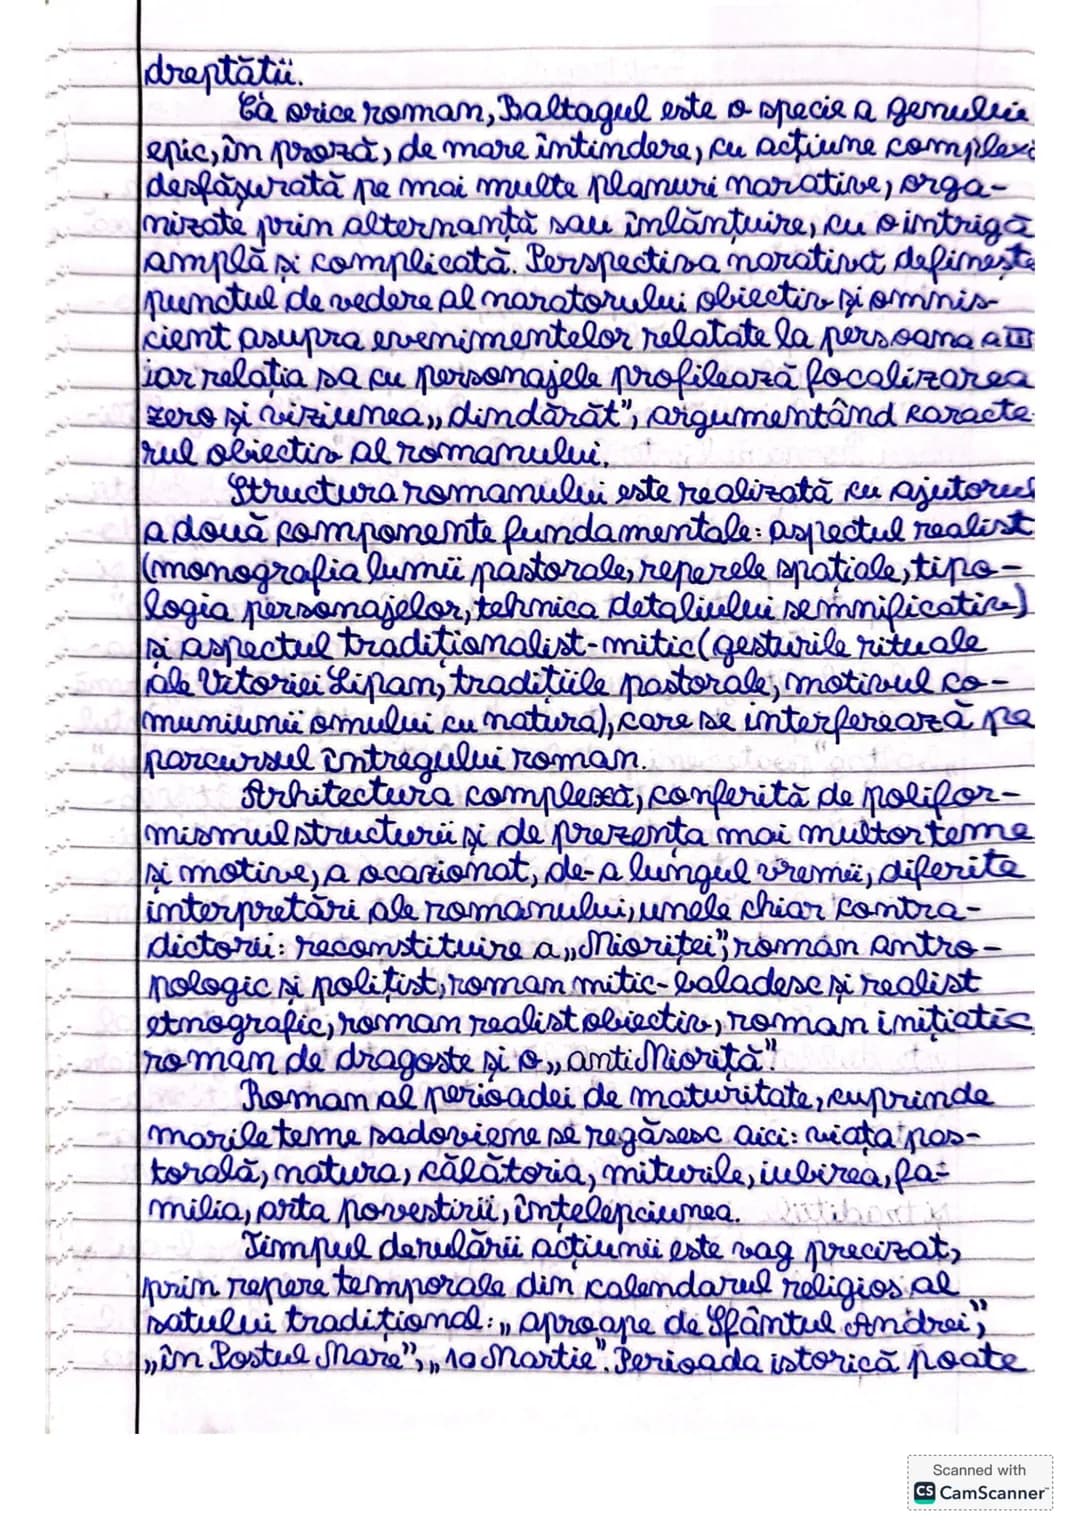 dreptății.
Ca orice roman, Baltagul este o specie a genului
epic, în proză, de mare întindere, cu acțiune complexă
desfășurată pe mai multe planuri narative, orga-
nizate prin alternanță sau înlănțuire, cu o intrigă
amplă și complicată. Perspectiva narativă definește
punctul de vedere al naratorului obiectiv și omnis-
cient asupra evenimentelor relatate la persoana a III
iar relația sa cu personajele profilează focalizarea
zero și viziunea „dindărăt", argumentând caracte-
rul obiectiv al romanului.
Structura romanului este realizată cu ajutorul
a două componente fundamentale: aspectul realist
(monografia lumii pastorale, reperele spațiale, tipo-
logia personajelor, tehnica detaliului semnificativ)
și aspectul tradiționalist-mitic (gesturile rituale
ale Vitoriei Lipan, tradițiile pastorale, motivul co-
muniunii omului cu natura), care se interferează pe
parcursul întregului roman.
Arhitectura complexă, conferită de polifor-
mismul structurii și de prezența mai multor teme
și motive, a ocazionat, de-a lungul vremii, diferite
interpretări ale romanului, unele chiar contra-
dictorii: reconstituire a „Mioriței", roman antro-
pologic și polițist, roman mitic-baladesc și realist
etnografic, roman realist obiectiv, roman inițiatic
roman de dragoste și o „antiMioriță".
Roman al perioadei de maturitate, cuprinde
marile teme sadoviene se regăsesc aici: viața pas-
torală, natura, călătoria, miturile, iubirea, fa-
milia, arta povestirii, înțelepciunea.
Timpul derulării acțiunii este vag precizat,
prin repere temporale din calendarul religios al
satului tradițional: „aproape de Sfântul Andrei",
„în Postul Mare", „10 Martie". Perioada istorică poate
Scanned with
CS CamScanner